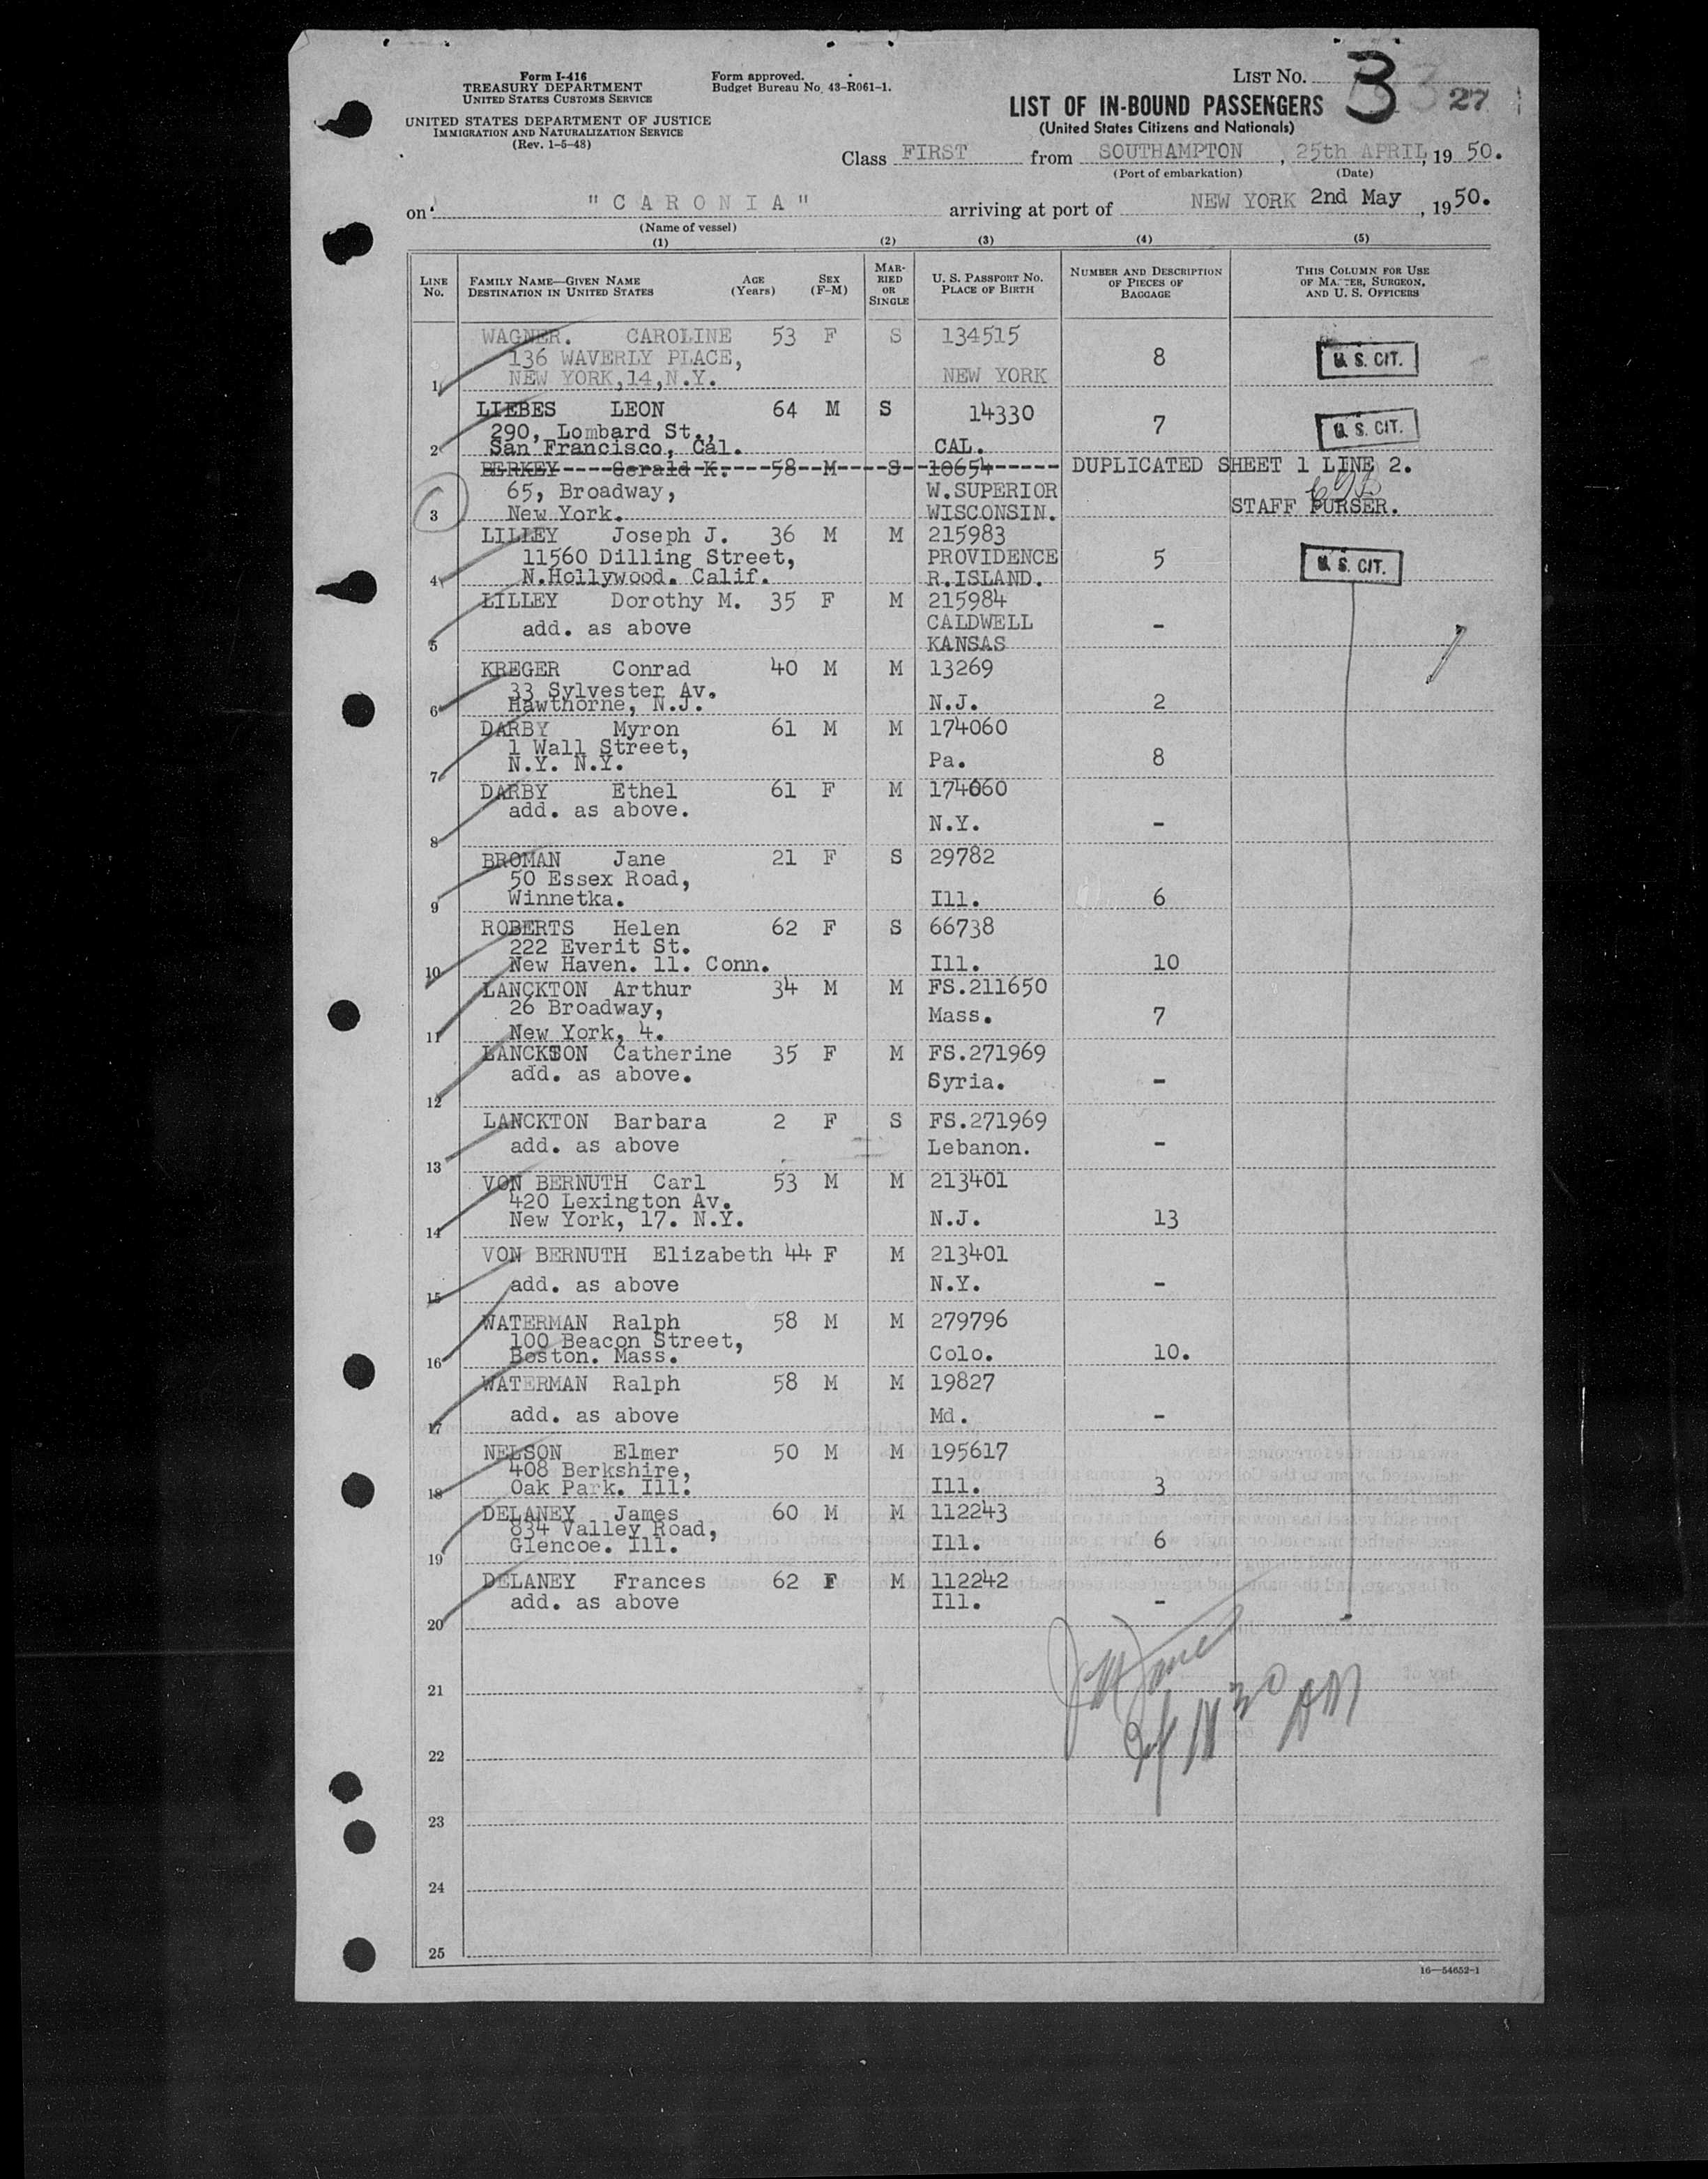 Form I-416
TREASURY DEPARTMENT
UNITED STATES CUSTOMS SERVICE
UNITED STATES DEPARTMENT OF JUSTICE
IMMIGRATION AND NATURALIZATION SERVICE
(Rev. 1-5-48)
Form approved.
Budget Bureau No. 43-R061-1.
LIST NO. 3
27
LIST OF IN-BOUND PASSENGERS
(United States Citizens and Nationals)
Class FIRST from SOUTHAMPTON, 25th APRIL, 19 50.
(Port of embarkation) (Date)
on "CARONIA" arriving at port of NEW YORK 2nd May, 19 50.
(Name of vessel)
(1) (2) (3) (4) (5)
LINE No.
FAMILY NAME—GIVEN NAME
DESTINATION IN UNITED STATES
AGE (Years)
SEX (F-M)
MARRIED OR SINGLE
U. S. PASSPORT NO.
PLACE OF BIRTH
NUMBER AND DESCRIPTION OF PIECES OF BAGGAGE
THIS COLUMN FOR USE OF MASTER, SURGEON, AND U. S. OFFICERS
WAGNER. CAROLINE 53 F S 134515
136 WAVERLY PLACE, 8 U. S. CIT.
1 NEW YORK,14,N.Y. NEW YORK
LIEBES LEON 64 M S 14330
290, Lombard St., 7 U. S. CIT.
2 San Francisco, Cal. CAL.
BERKEY Gerald K. 58 M S 10654 DUPLICATED SHEET 1 LINE 2.
65, Broadway, W.SUPERIOR
3 New York. WISCONSIN. STAFF PURSER.
LILLEY Joseph J. 36 M M 215983
11560 Dilling Street, PROVIDENCE 5 U. S. CIT.
4 N.Hollywood. Calif. R.ISLAND.
LILLEY Dorothy M. 35 F M 215984
add. as above CALDWELL -
5 KANSAS
KREGER Conrad 40 M M 13269
33 Sylvester Av.
6 Hawthorne, N.J. N.J. 2
DARBY Myron 61 M M 174060
1 Wall Street,
7 N.Y. N.Y. Pa. 8
DARBY Ethel 61 F M 174060
add. as above.
8 N.Y. -
BROMAN Jane 21 F S 29782
50 Essex Road,
9 Winnetka. Ill. 6
ROBERTS Helen 62 F S 66738
222 Everit St.
10 New Haven. 11. Conn. Ill. 10
LANCKTON Arthur 34 M M FS.211650
26 Broadway, Mass. 7
11 New York, 4.
LANCKTON Catherine 35 F M FS.271969
add. as above. Syria. -
12
LANCKTON Barbara 2 F S FS.271969
add. as above Lebanon. -
13
VON BERNUTH Carl 53 M M 213401
420 Lexington Av.
14 New York, 17. N.Y. N.J. 13
VON BERNUTH Elizabeth 44 F M 213401
15 add. as above N.Y. -
WATERMAN Ralph 58 M M 279796
100 Beacon Street,
16 Boston. Mass. Colo. 10.
WATERMAN Ralph 58 M M 19827
17 add. as above Md. -
NELSON Elmer 50 M M 195617
408 Berkshire,
18 Oak Park. Ill. Ill. 3
DELANEY James 60 M M 112243
834 Valley Road,
19 Glencoe. Ill. Ill. 6
DELANEY Frances 62 F M 112242
add. as above Ill. -
20
21
22
23
24
25
30 AM
16—54652-1